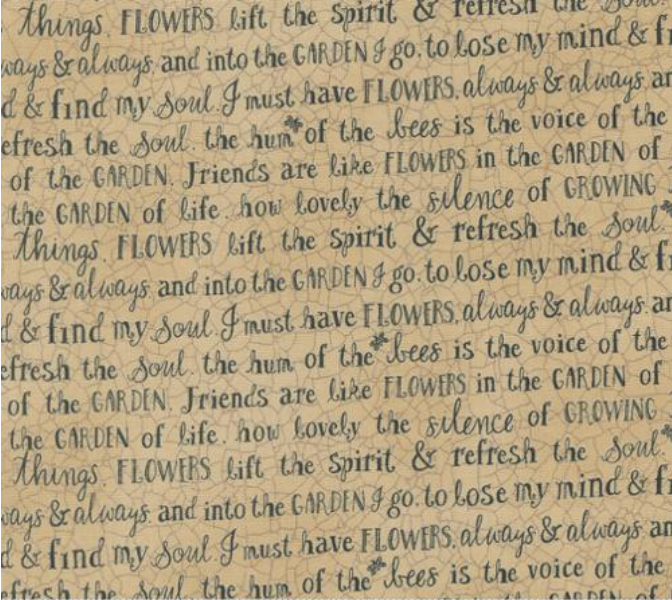 things. FLOWERS lift the Spirit & refresh the Soul
ways & always. and into the GARDEN I go. to lose my mind &
d & find my Soul. I must have FLOWERS. always & always
efresh the Soul. the hum of the bees is the voice of the
of the GARDEN. Friends are like FLOWERS in the GARDEN of
the GARDEN of life. how lovely the silence of GROWING
things. FLOWERS lift the Spirit & refresh the Soul.
ways & always. and into the GARDEN I go. to lose my mind &
d & find my Soul. I must have FLOWERS. always & always
efresh the Soul. the hum of the bees is the voice of the
of the GARDEN. Friends are like FLOWERS in the GARDEN of
the GARDEN of life. how lovely the silence of GROWING
things. FLOWERS lift the Spirit & refresh the Soul.
ways & always. and into the GARDEN I go. to lose my mind &
d & find my Soul. I must have FLOWERS. always & always an
efresh the Soul. the hum of the bees is the voice of the
GARDEN of